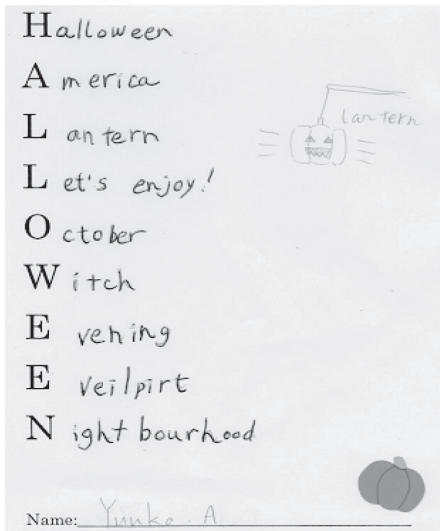 Halloween
America
Lantern
lantern
Let's enjoy!
October
Witch
Evening
Eveilpirt
Nightbourhood
Name: Yunko. A